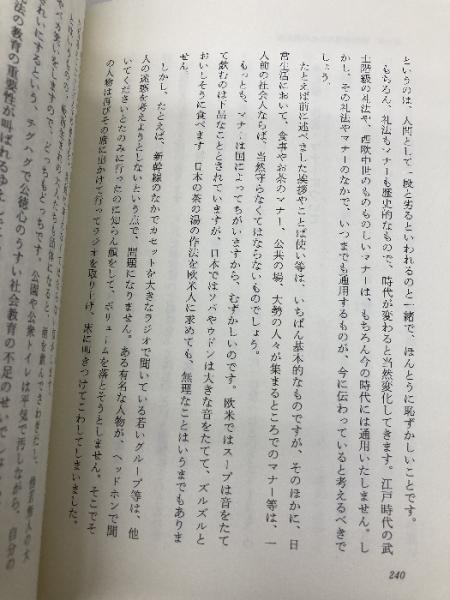 というのは、人間として一段と劣るといわれるのと一緒で、ほんとうに恥ずかしいことです。
もちろん、礼法もマナーも歴史的なもので、時代が変わると当然変化してきます。江戸時代の武
士階級の礼法や、西欧中世のものものしいマナーは、もちろん今の時代には通用いたしません。し
かし、その礼法やマナーのなかで、いつまでも通用するものが、今に伝わっていると考えるべきで
しょう。
たとえば前に述べました挨拶やことば使い等は、いちばん基本的なものですが、そのほかに、日
常生活において、食事やお茶のマナー、公共の場、大勢の人々が集まるところでのマナー等は、一
人前の社会人ならば、当然守らなくてはならないものでしょう。
もっとも、マナーは国によってちがいますから、むずかしいのです。欧米ではスープは音をたて
て飲むのは下品なこととされていますが、日本ではソバやウドンは大きな音をたてて、ズルズルと
おいしそうに食べます。日本の茶の湯の作法を欧米人に求めても、無理なことはいうまでもありま
せん。
しかし、たとえば、新幹線のなかでカセットを大きなラジオで聞いている若いグループ等は、他
人の迷惑を考えようとしないという点で、問題になりません。ある有名な人物が、ヘッドホンで聞
いてくださいとたのみに行ったのに知らん顔をして、ボリュームを落とそうとしません。そこでそ
の人物は再びその席に出かけて行ってラジオを取り上げ、床に叩きつけてこわしてしまいました。
どっちもどっちです。公園や公衆トイレは平気で汚しながら、自分の
きれいにするという、チグハグで公徳心のうすい社会教育の不足のせいで
法の教育の重要性が叫ばれるゆえん
240